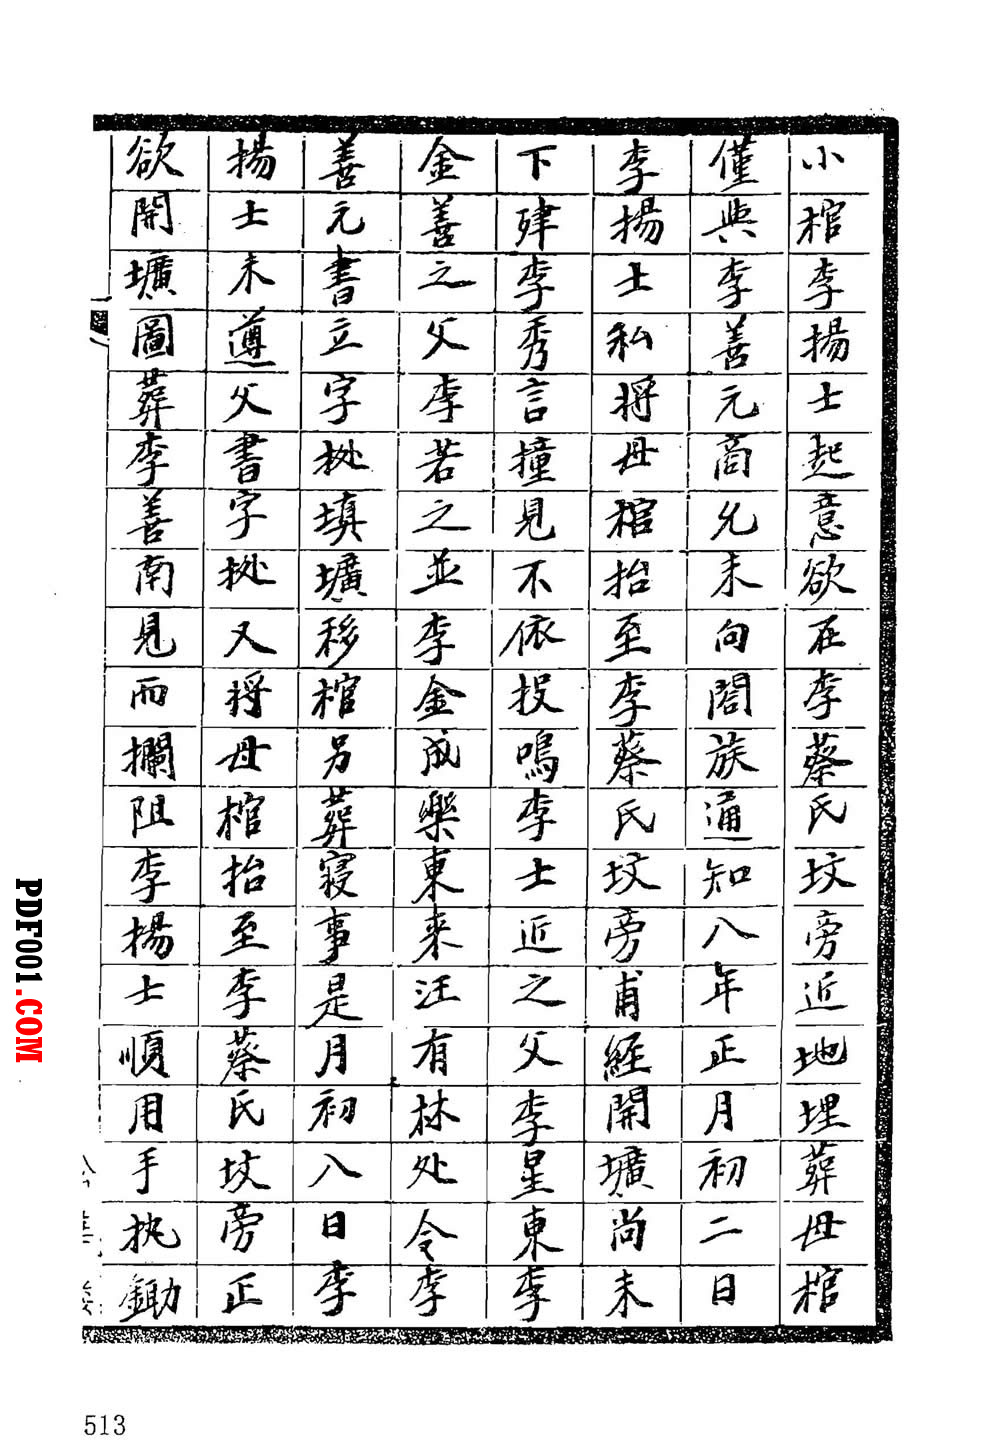 小棺李揚士起意欲在李蔡氏坟旁近地埋葬母棺
僅與李善元商允未向閤族通知八年正月初二日
李揚士私将母棺抬至李蔡氏坟旁甫經開壙尚未
下肂李秀言撞見不依投鳴李士近之父李星東李
金善之父李若之並李金成樂東来汪有林处令李
善元書立字挑填壙移棺另葬寝事是月初八日李
揚士未遵父書字挑又将母棺抬至李蔡氏坟旁正
欲開壙圖葬李善南見而攔阻李揚士順用手执鋤
513
PDF001.COM